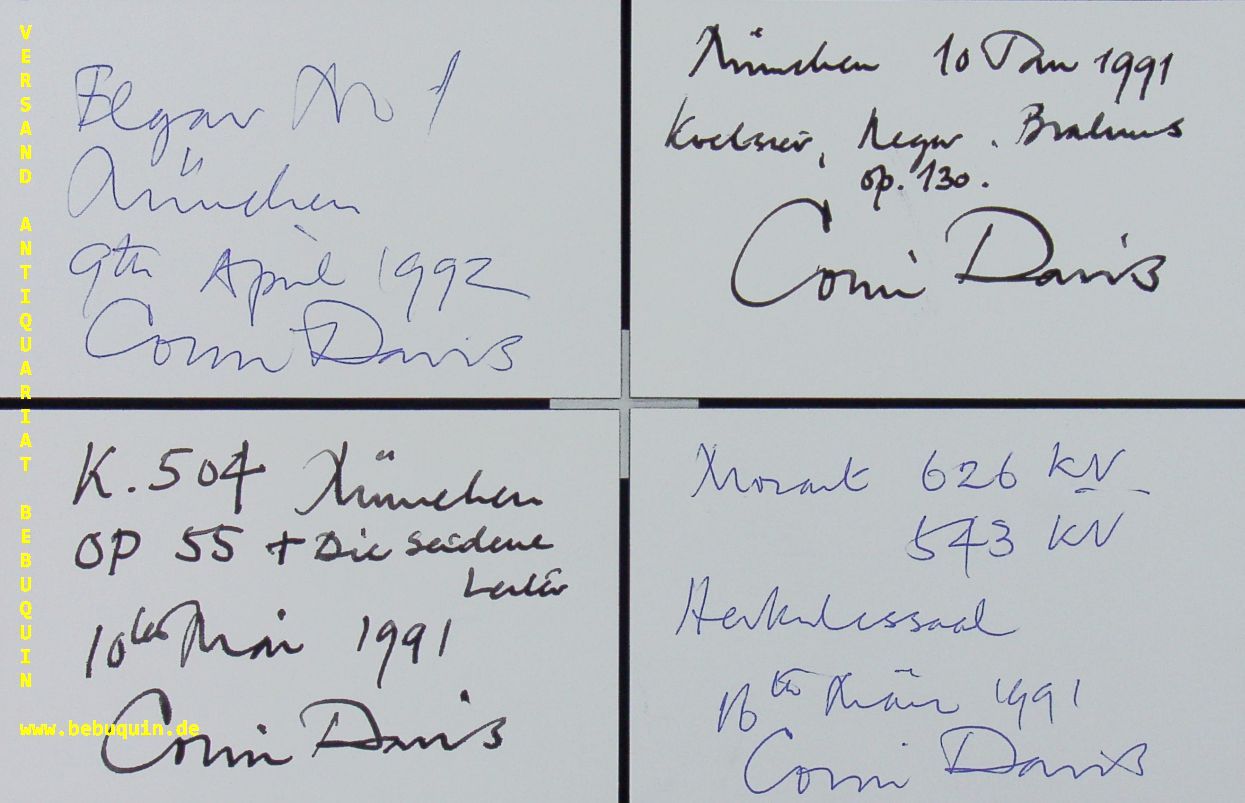 VERSAND ANTIQUARIAT BEBUQUIN
www.bebuquin.de
Elgar No 1
München
9th April 1992
Colin Davis
München 10 Jan 1991
Reger. Brahms
op. 130.
Colin Davis
K.504 München
OP 55 + Die seidene
Leiter
10ter Mai 1991
Colin Davis
Mozart 626 KV
543 KV
Herkulessaal
16ten März 1991
Colin Davis